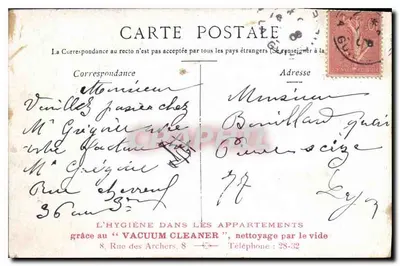 CARTE POSTALE
La Correspondance au recto n'est pas acceptée par tous les pays étrangers (Se renseigner à la
Correspondance
Adresse
Monsieur
Veuillez passer chez
Mr Grégoire
votre facture
Mr Grégoire
Rue
36 au 3me
Monsieur
Bouillard quai
Pierre scize
77
Lyon
L'HYGIÈNE DANS LES APPARTEMENTS
grâce au " VACUUM CLEANER ", nettoyage par le vide
8, Rue des Archers, 8
Téléphone : 28-32